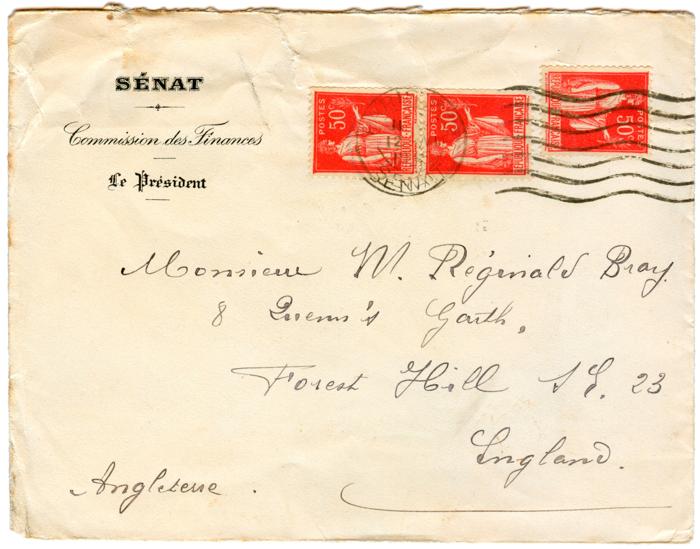 SÉNAT
Commission des Finances
Le Président
POSTES 50c RÉPUBLIQUE FRANÇAISE
POSTES 50c RÉPUBLIQUE FRANÇAISE
POSTES 50c RÉPUBLIQUE FRANÇAISE
Monsieur W. Réginald Bray
8 Queens's Garth,
Forest Hill S.E. 23
England.
Angleterre.